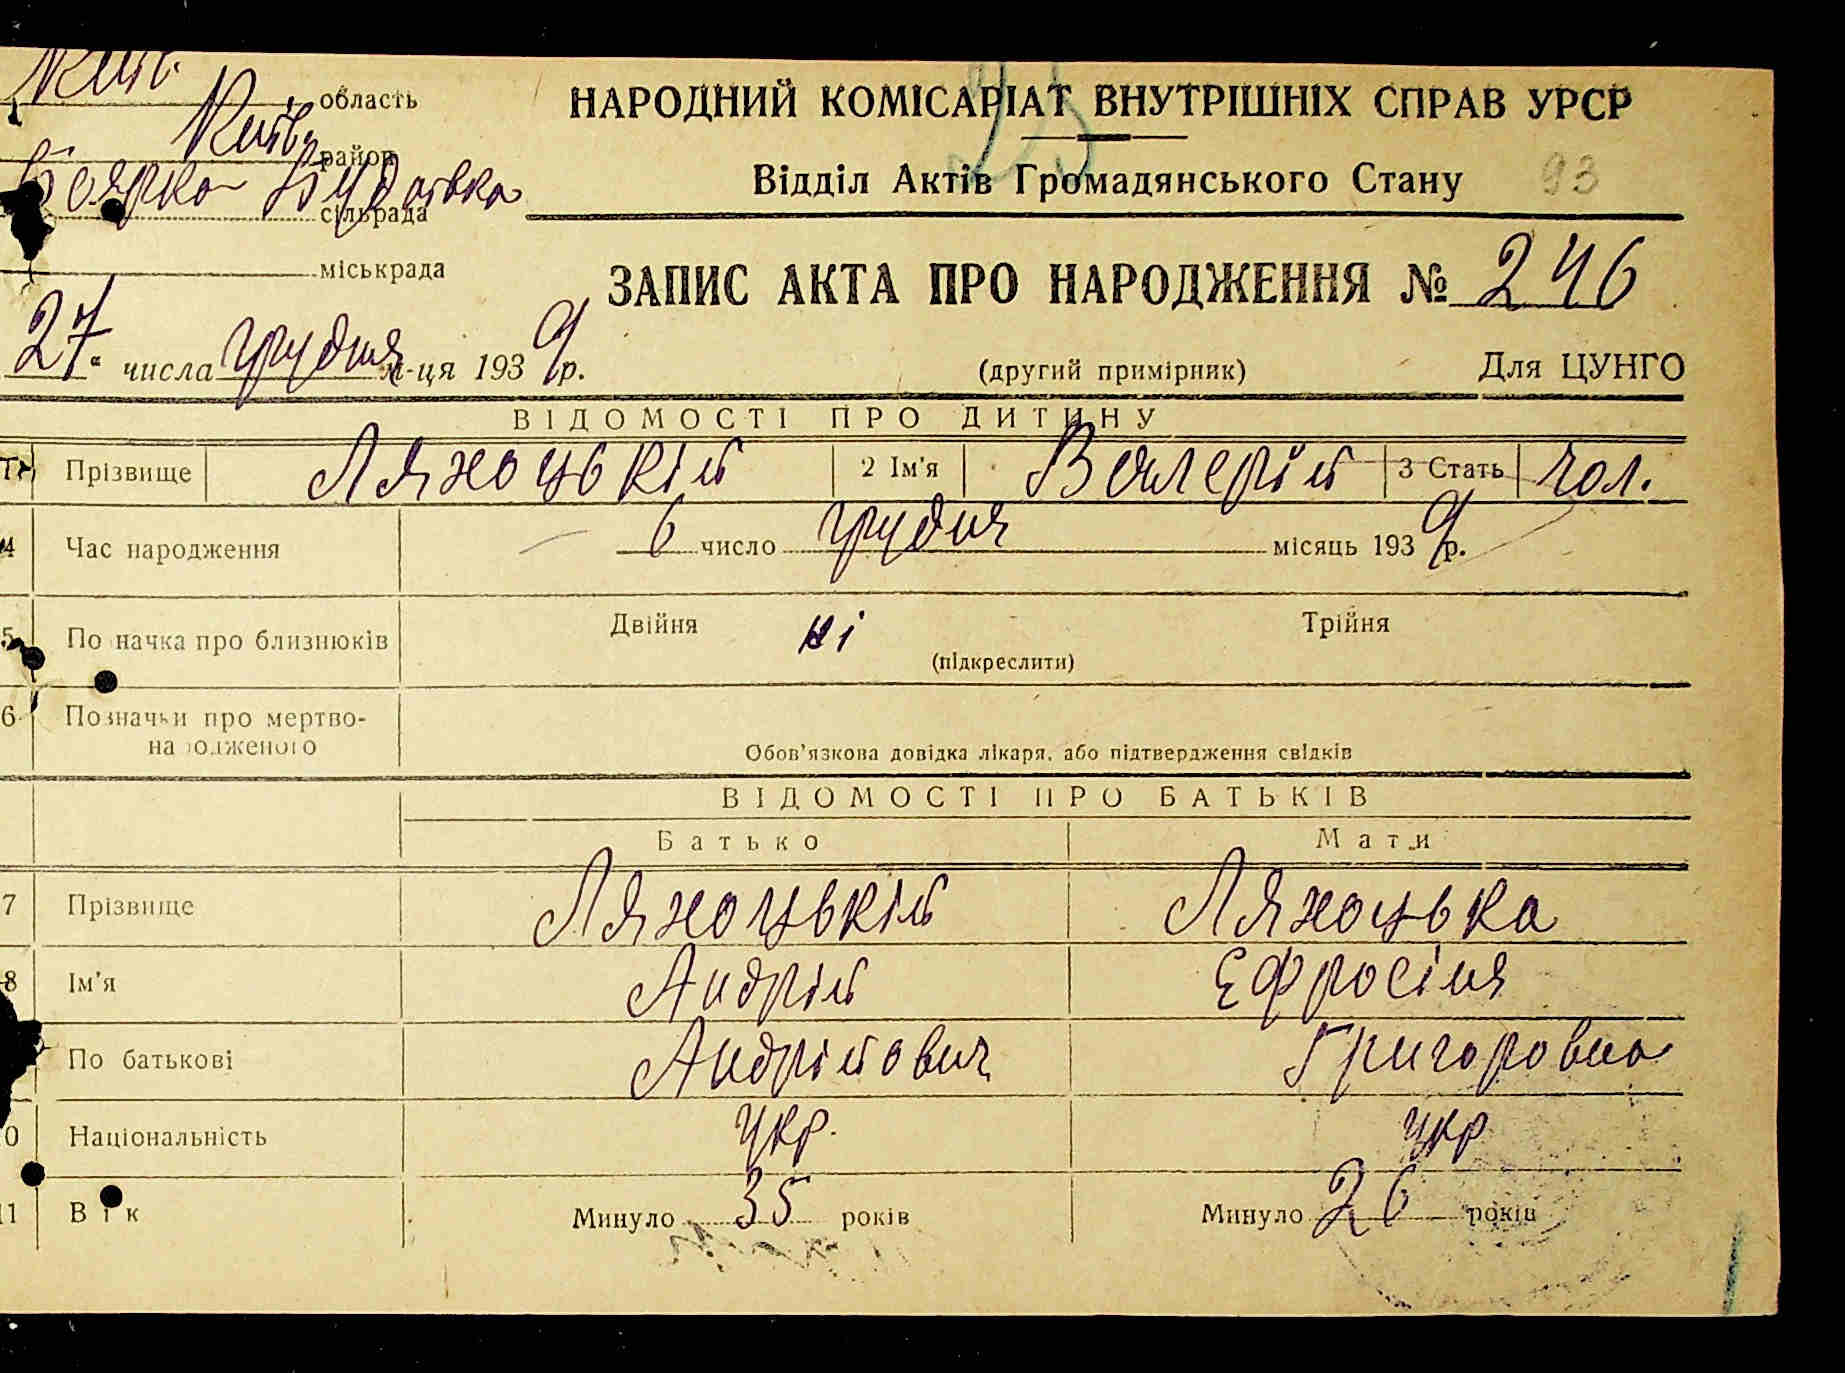 Київ. область
Київ. район
Боярка Будаївка сільрада
міськрада
НАРОДНИЙ КОМІСАРІАТ ВНУТРІШНІХ СПРАВ УРСР
23
Відділ Актів Громадянського Стану 93
ЗАПИС АКТА ПРО НАРОДЖЕННЯ № 246
27 " числа грудня м-ця 1939 р. (другий примірник) Для ЦУНГО
ВІДОМОСТІ ПРО ДИТИНУ
1 Прізвище Ляхоцький 2 Ім'я Валерій 3 Стать чол.
4 Час народження 6 число грудня місяць 1939 р.
5 По начка про близнюків Двійня ні Трійня
(підкреслити)
6 Позначки про мертво-
на одженого Обов'язкова довідка лікаря, або підтвердження свідків
ВІДОМОСТІ ПРО БАТЬКІВ
Батько Мати
7 Прізвище Ляхоцькій Ляхоцька
8 Ім'я Андрій Ефросіня
По батькові Андрійович Григоровна
0 Національність укр. укр
11 Вік Минуло 35 років Минуло 26 років